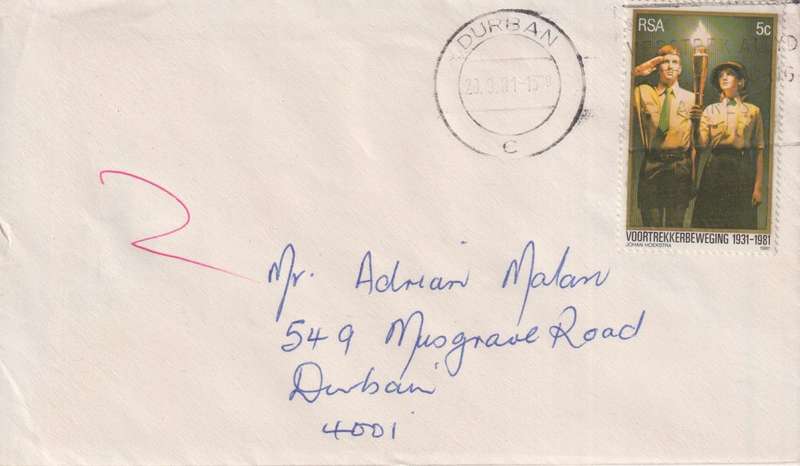 DURBAN
C
RSA 5c
VOORTREKKERBEWEGING 1931-1981
JOHAN HOEKSTRA 1981
2
Mr. Adrian Malan
549 Musgrave Road
Durban
4001